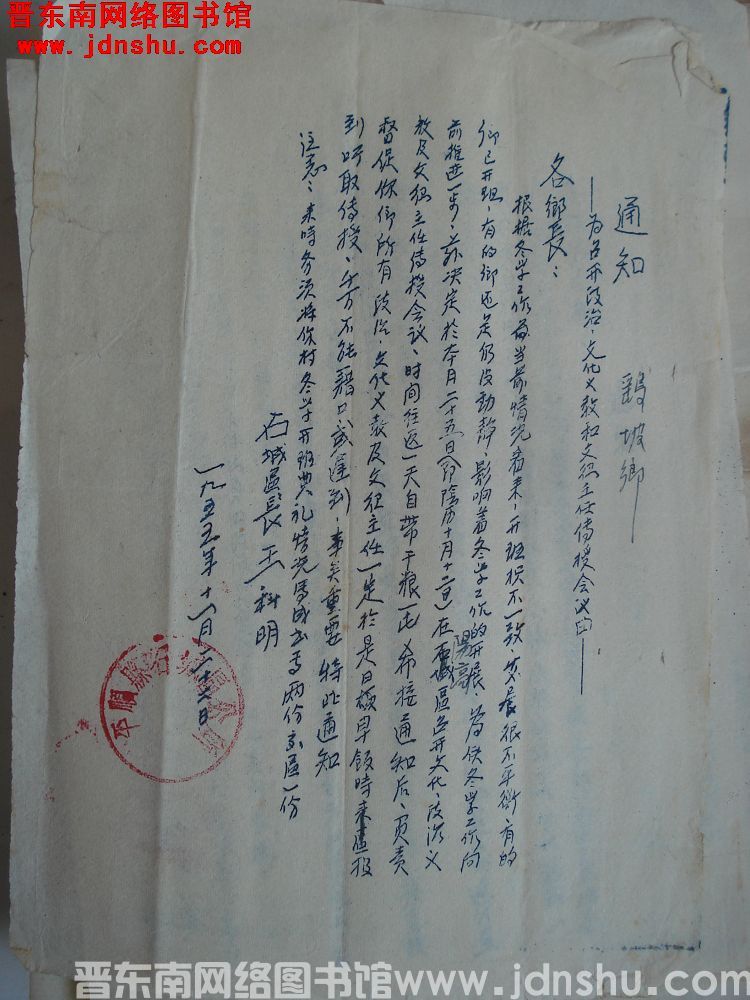 晋东南网络图书馆
www.jdnshu.com
通知
坡鄉
——为召开政治、文化义教和文纪主任传授会议由——
各鄉長：
根据冬学工作当前情况看来，开班极不一致，发展很不平衡，有的
鄉已开班，有的鄉还是仍没动静，影响着冬学工作的开展，为使冬学工作向
前推进一步，兹决定於本月二十五日（即陰历十月十二日）在石城區召开文化、政治义
教及文纪主任传授会议，时间往返一天自带干粮一出，希接通知后，负责
督促你鄉所有政治、文化义教及文纪主任一定於是日顿早飯時来區报
到听取传授，千万不能藉口或遲到，事关重要特此通知
注意：来時务须将你村冬学开班典礼情况写成书高两份交區一份
石城區長王科明
一九五五年十一月二十日
平順縣石城區公所
晋东南网络图书馆 www.jdnshu.com